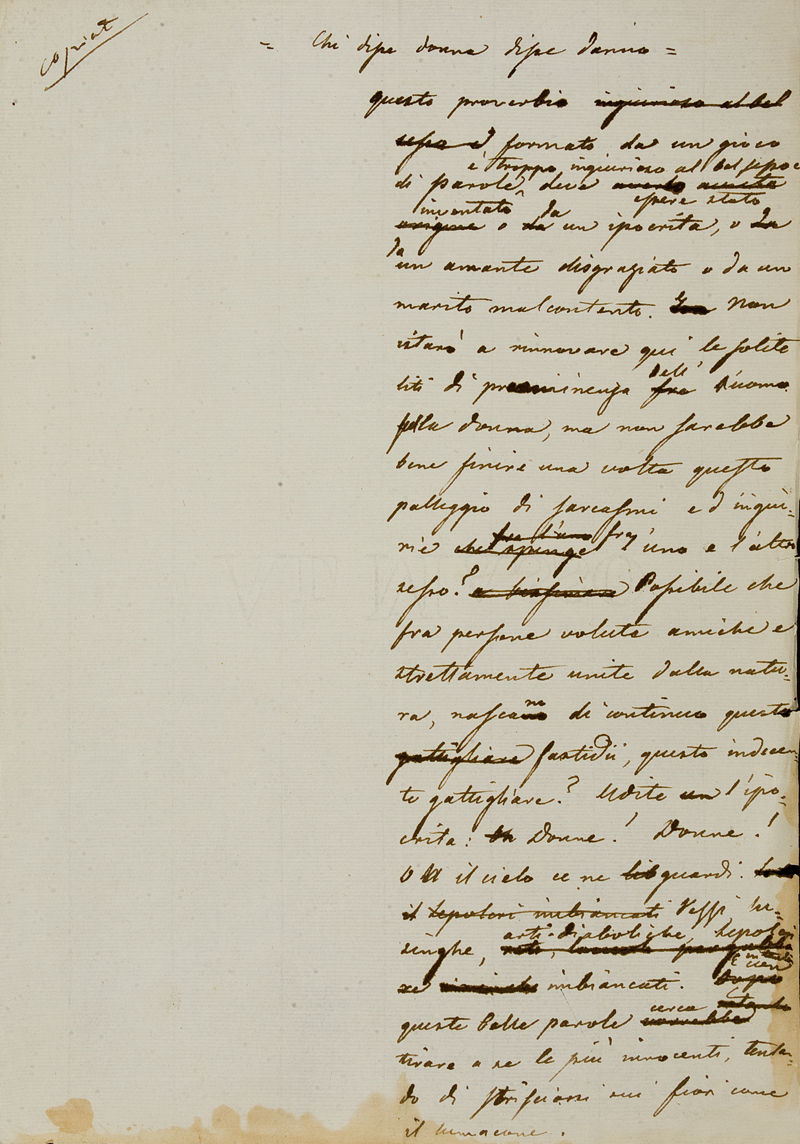 copiat
= Chi disse donna disse danno =
questo proverbio ingiurioso al bel
sesso è formato da un gioco
è troppo ingiurioso al bel sesso e
di parole, deve averlo
essere stato
inventato da
origine o da un ipocrita, o da
da
un amante disgraziato o da un
marito malcontento. Non
istarò a rinnovare qui le solite
dell'
liti di preminenza fra l'uomo
sulla donna, ma non sarebbe
bene finire una volta questo
palleggio di sarcasmi e d'ingiu-
fra l'uno fra
rie che spinge l'uno e l'altro
sesso? Possibile che
fra persone volute amiche e
strettamente unite dalla natu-
ra, nascano di continuo questi
gattigliare fastidii, questo indecen-
te gattigliare? Udite un l'ipo-
crita: Oh Donne! Donne!
Oh il cielo ce ne lib guardi.
il sepolcri imbiancati Vezzi, lu-
arti diaboliche, sepolcri
singhe, reti,
re imbiancati. Dopo
E intanto
cerca
queste belle parole vorrebbe
tirare a se le più innocenti, tentan-
do di strisciarsi sui fiori come
il lumacone.